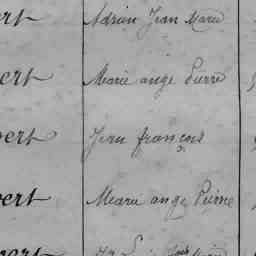 ert Adrien Jean Marie
bert Marie ange Pierre
bert Jean françois
bert Marie ange Pierre